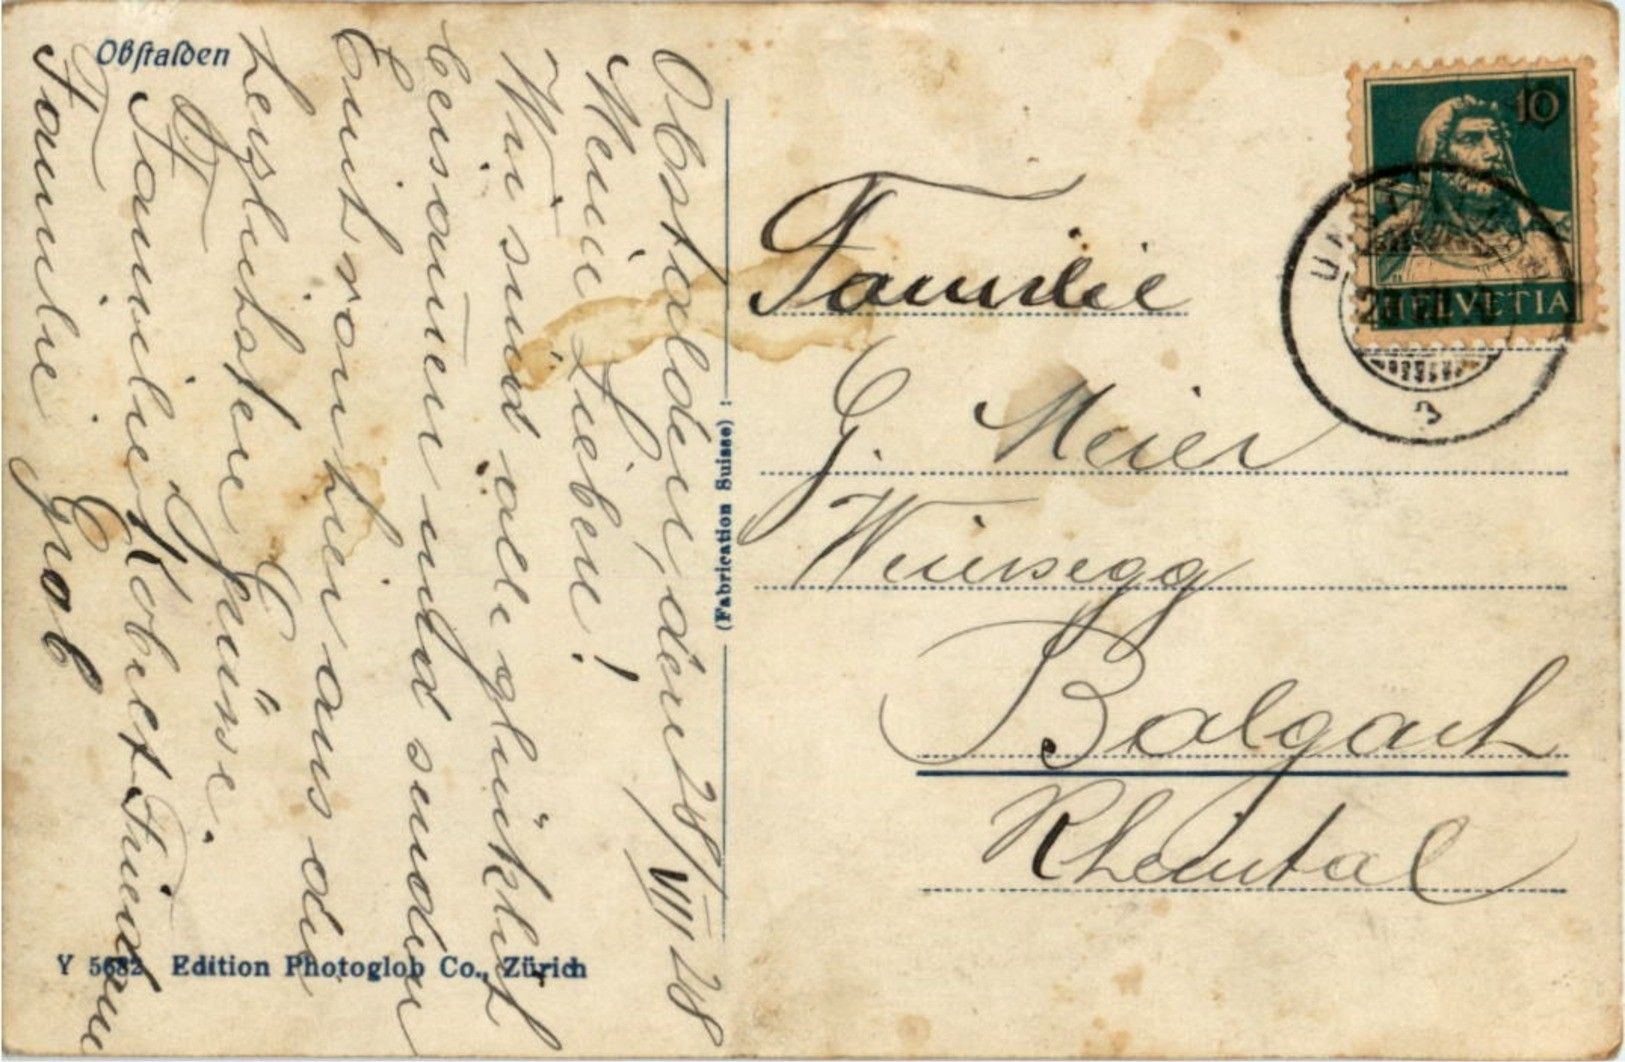 Obstalden
Obstalden, den 28/VII 28
Meine Lieben!
Wir sind alle glücklich
beisamen und senden
Euch von hier aus die
herzlichsten Grüsse.
Familie Kobelt
Familie Grob
Familie
G. Meier
Weinsegg
Balgach
Rheintal
10
HELVETIA
(Fabrication Suisse)
Y 5682 Edition Photoglob Co., Zürich